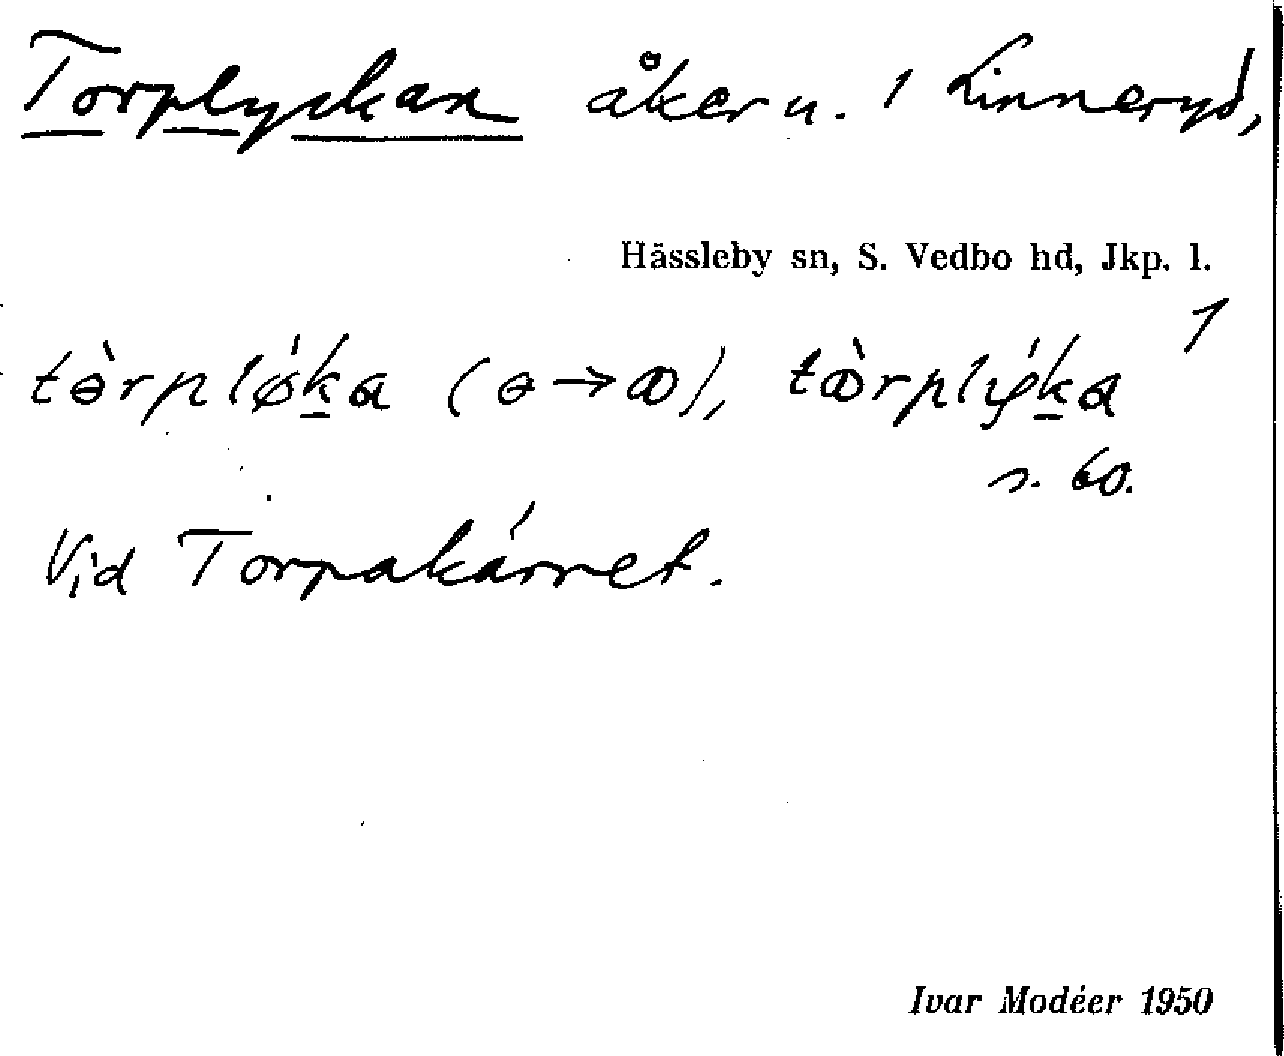 Torplyckan åker u. 1 Linneryd,
Hässleby sn, S. Vedbo hd, Jkp. l.
1
tɵ̀rpløḱa (ɵ→ꝏ), tꝏ̀rplyḱa
s. 60.
Vid Torpakärret.
Ivar Modéer 1950